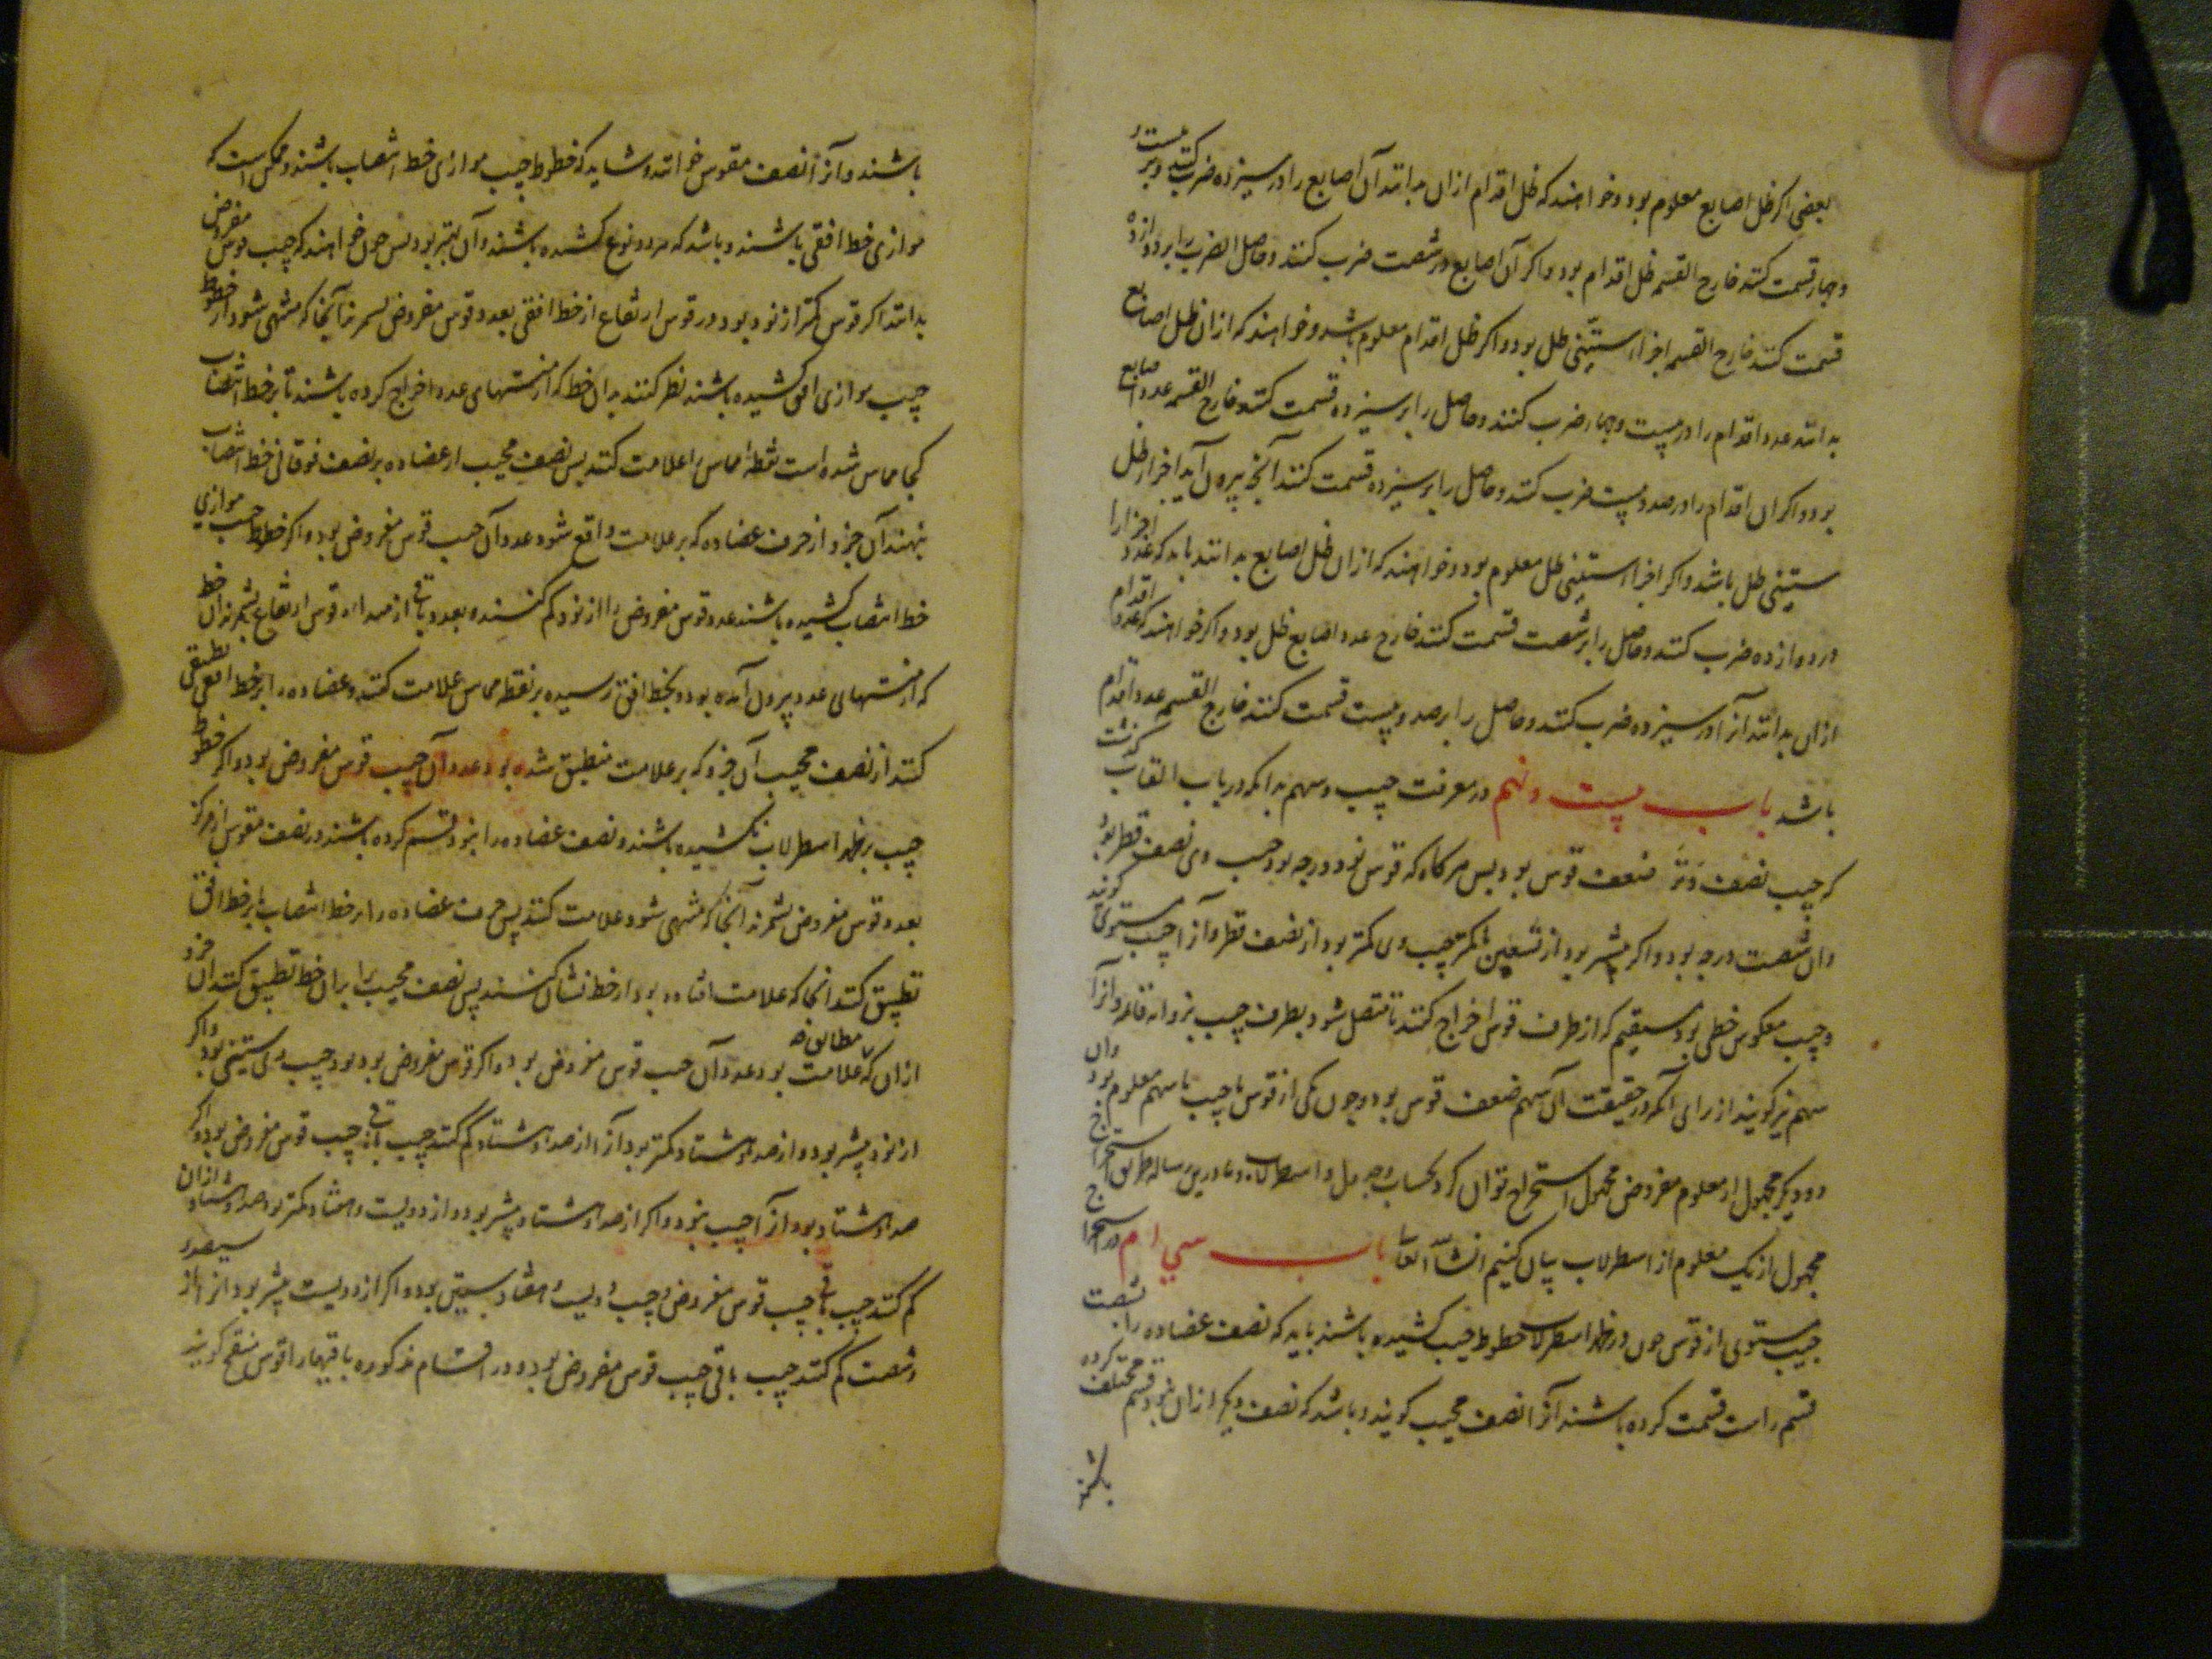 بعضی اکر ظل اصابع معلوم بود و خواهند که ظل اقدام ازان بدانند آن اصابع را در سیزده ضرب کنند و بر بیست
و چهار قسمت کنند خارج القسمه ظل اقدام بود و اکر آن اصابع در شصت ضرب کنند و حاصل الضرب را بر دوازده
قسمت کنند خارج القسمه اجزاء ستینی ظل بود و اکر ظل اقدام معلوم باشد و خواهند که ازان ظل اصابع
بدانند عدد اقدام را در بیست و چهار ضرب کنند و حاصل را بر سیزده قسمت کنند و خارج القسمه عدد اصابع
بود و اکر ان اقدام را در صد و بیست ضرب کنند و حاصل را بر سیزده قسمت کنند آنچه بیرون آید اجزاء ظل
ستینی ظل باشد و اکر اجزاء ستینی ظل معلوم بود و خواهند که ازان ظل اصابع بدانند باید که عدد اجزا را
در دوازده ضرب کنند و حاصل را بر شصت قسمت کنند خارج عدد اصابع ظل بود و اکر خواهند که عدد اقدام
ازان بدانند آنرا در سیزده ضرب کنند و حاصل را بر صد و بیست قسمت کنند خارج القسمه عدد اقدام
باشد باب بیست و نهم در معرفت جیب و سهم بدانکه در باب القاب کذشت
که جیب نصف وتر ضعف قوس بود پس هر کاه که قوس نود درجه بود جیب وی نصف قطر بود
وان شصت درجه بود و اکر بیشتر بود از تسعین یا کمتر جیب وی کمتر بود از نصف قطر و آنرا جیب مستوی کویند
و جیب معکوس خطی بود مستقیم که از طرف قوس اخراج کنند تا متصل شود بطرف جیب بزوایه قائمه و آنرا
سهم نیز کویند از برای آنکه در حقیقت آن سهم ضعف قوس بود و چون یکی از قوس یا جیب یا سهم معلوم بود وان
دو دیکر مجهول از معلوم مفروض مجهول استخراج توان کرد بحساب و جدول و اسطرلاب و ما درین رساله طریق استخراج
مجهول از یک معلوم از اسطرلاب بیان کنیم انشاء الله تعالی باب سی ام در استخراج
جیب مستوی از قوس چون در ظهر اسطرلاب خطوط جیب کشیده باشند باید که نصف عضاده را بشصت
قسم راست قسمت کرده باشند آنرا نصف مجیب کویند و باشد که نصف دیکر ازان بنود قسم مختلف کرده
باشند
باشند و آنرا نصف مقوس خوانند و شاید که خطوط جیب موازی خط انتصاب باشند و ممکن است که
موازی خط افقی باشند و باشد که هر دو نوع کشیده باشند و آن بهتر بود پس چون خواهند که جیب قوس مفروض
بدانند اکر قوس کمتر از نود بود در قوس ارتفاع از خط افقی بعدد قوس مفروض بشمرند تا آنجا که منتهی شود از خطوط
جیب موازی افق کشیده باشند نظر کنند بدان خط که از منتهای عدد اخراج کرده باشند تا بر خط انتصاب
کجا مماس شده است نقطه مماس را علامت کنند پس نصف مجیب از عضاده بر نصف فوقانی خط انتصاب
نهند آن جزو از حرف عضاده که بر علامت واقع شود عدد آن جیب قوس مفروض بود و اکر خطوط جیب موازی
خط انتصاب کشیده باشند عدد قوس مفروض را از نود کم کنند و بعدد باقی از مبداء قوس ارتفاع بشمرند ان خط
که از منتهای عدد بیرون آمده بود و بخط افق رسیده بر نقطه مماس علامت کنند و عضاده را بر خط افقی تطبیق
کنند از نصف مجیب آن جزو که بر علامت منطبق شده بود عدد آن جیب قوس مفروض بود و اکر خطوط
جیب بر ظهر اسطرلاب نکشیده باشند و نصف عضاده را بنود قسم کرده باشند در نصف مقوس از مرکز
بعدد قوس مفروض بشمرند آنجا که منتهی شود علامت کنند پس حرف عضاده را بر خط انتصاب یا بر خط افق
تطبیق کنند آنجا که علامت افتاده بود از خط نشان کنند پس نصف مجیب را بران خط تطبیق کنند ان جزو
ازان که مطابق علامت بود عدد آن جیب قوس مفروض بود و اکر قوس مفروض نود بود جیب وی ستینی بود و اکر
از نود بیشتر بود و از صد و هشتاد کمتر بود آنرا از صد و هشتاد کم کنند جیب باقی جیب قوس مفروض بود و اکر
صد و هشتاد بود آنرا جیب نبود و اکر از صد و هشتاد بیشتر بود و از دویست و هفتاد کمتر بود صد و هشتاد ازان
کم کنند جیب باقی جیب قوس مفروض و جیب دویست و هفتاد ستین بود و اکر از دویست بیشتر بود انرا از سیصد
و شصت کم کنند جیب باقی جیب قوس مفروض بود و در اقسام مذکوره باقیها را قوس منقح کویند